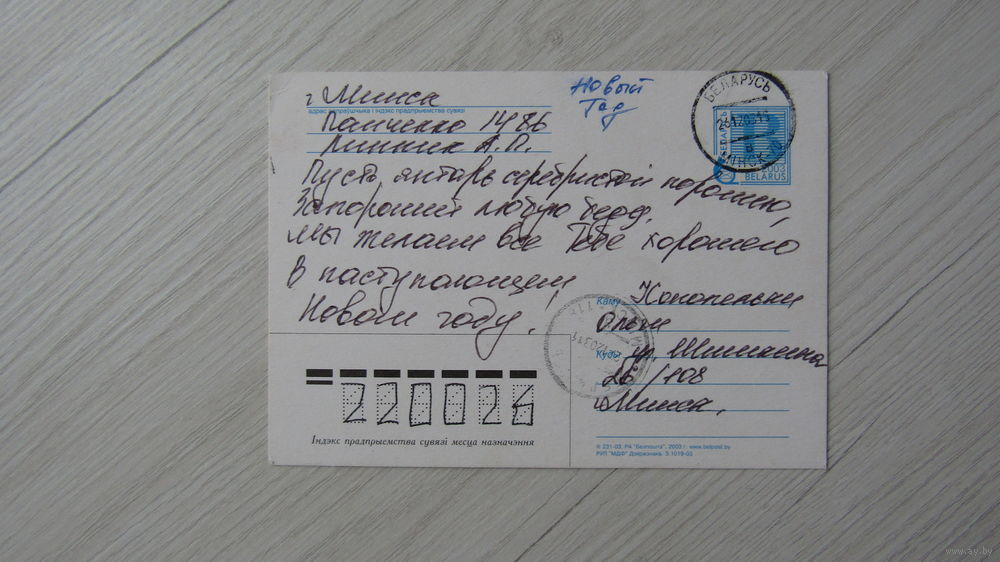 Новый
Год
г. Минск
адрас адпраўшчыка і індэкс прадпрыемства сувязі
Панченко 14 86
А.П.
Пусть январь серебристой порошею,
Запорошит любую беду.
Мы желаем все Тебе хорошего
В наступающем
Новом году!
БЕЛАРУСЬ
МІНСК
БЕЛАРУСЬ
2003
BELARUS
Каму
Ольги
Куды ул. Шишкина
26/108
г. Минск.
220026
Індэкс прадпрыемства сувязі месца назначэння
© 231-03. РА "Белпошта". 2003 г. www.belpost.by
РУП "МДФ" Дзяржзнака. З.1019-03
www.ay.by